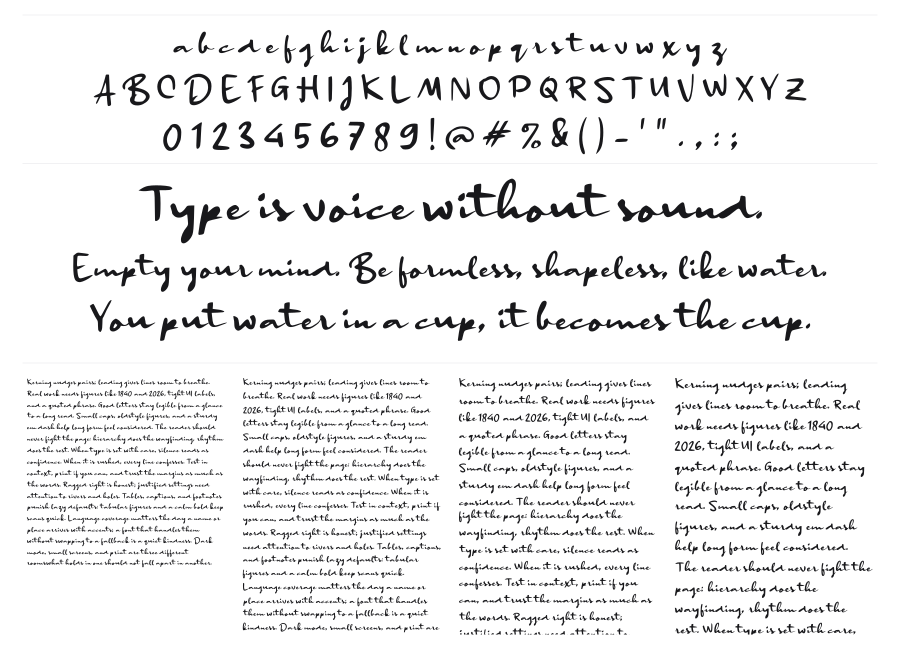 a b c d e f g h i j k l m n o p q r s t u v w x y z
A B C D E F G H I J K L M N O P Q R S T U V W X Y Z
0 1 2 3 4 5 6 7 8 9 ! @ # % & ( ) - ' " . , : ;
Type is voice without sound.
Empty your mind. Be formless, shapeless, like water.
You put water in a cup, it becomes the cup.
Kerning nudges pairs; leading gives lines room to breathe.
Real work needs figures like 1840 and 2026, tight UI labels,
and a quoted phrase. Good letters stay legible from a glance
to a long read. Small caps, oldstyle figures, and a sturdy
em dash help long form feel considered. The reader should
never fight the page: hierarchy does the wayfinding, rhythm
does the rest. When type is set with care, silence reads as
confidence. When it is rushed, every line confesses. Test in
context, print if you can, and trust the margins as much as
the words. Ragged right is honest; justified settings need
attention to rivers and holes. Tables, captions, and footnotes
punish lazy defaults: tabular figures and a calm bold keep
scans quick. Language coverage matters the day a name or
place arrives with accents; a font that handles them
without swapping to a fallback is a quiet kindness. Dark
mode, small screens, and print are three different
rooms: what holds in one should not fall apart in another.
Kerning nudges pairs; leading gives lines room to
breathe. Real work needs figures like 1840 and
2026, tight UI labels, and a quoted phrase. Good
letters stay legible from a glance to a long read.
Small caps, oldstyle figures, and a sturdy em
dash help long form feel considered. The reader
should never fight the page: hierarchy does the
wayfinding, rhythm does the rest. When type is set
with care, silence reads as confidence. When it is
rushed, every line confesses. Test in context, print if
you can, and trust the margins as much as the
words. Ragged right is honest; justified settings
need attention to rivers and holes. Tables, captions,
and footnotes punish lazy defaults: tabular
figures and a calm bold keep scans quick.
Language coverage matters the day a name or
place arrives with accents; a font that handles
them without swapping to a fallback is a quiet
kindness. Dark mode, small screens, and print are
Kerning nudges pairs; leading gives lines
room to breathe. Real work needs figures
like 1840 and 2026, tight UI labels, and
a quoted phrase. Good letters stay
legible from a glance to a long read.
Small caps, oldstyle figures, and a
sturdy em dash help long form feel
considered. The reader should never
fight the page: hierarchy does the
wayfinding, rhythm does the rest. When
type is set with care, silence reads as
confidence. When it is rushed, every line
confesses. Test in context, print if you
can, and trust the margins as much as
the words. Ragged right is honest;
justified settings need attention to
Kerning nudges pairs; leading
gives lines room to breathe. Real
work needs figures like 1840 and
2026, tight UI labels, and a
quoted phrase. Good letters stay
legible from a glance to a long
read. Small caps, oldstyle
figures, and a sturdy em dash
help long form feel considered.
The reader should never fight the
page: hierarchy does the
wayfinding, rhythm does the
rest. When type is set with care,